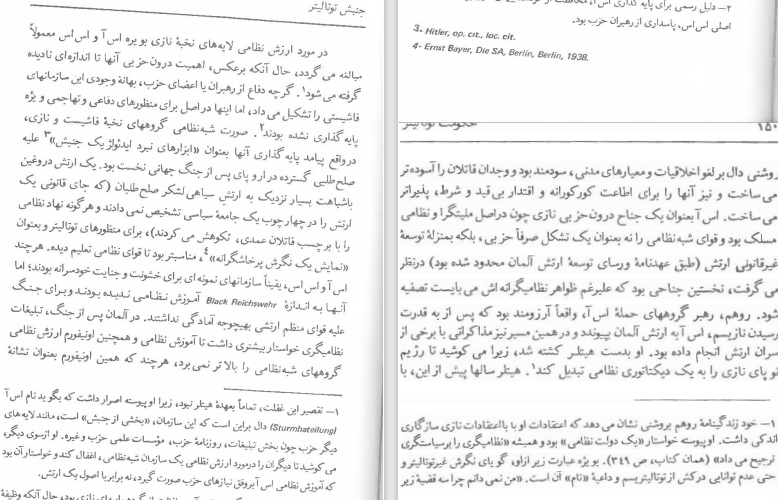 جنبش توتالیتر
در مورد ارزش نظامی لایه‌های نخبهٔ نازی، بویره اس‌آ و اس‌اس معمولاً
مبالغه می گردد، حال آنکه برعکس، اهمیت درون‌حزبی آنها تا اندازه‌ای نادیده
گرفته می‌شود۱. گرچه دفاع از رهبران یا اعضای حزب، بهانهٔ وجودی این سازمانهای
فاشیستی را تشکیل می‌داد، اما اینها در اصل برای منظورهای دفاعی و تهاجمی و یژه
پایه گذاری نشده بودند۲. صورت شبه‌نظامی گروههای نخبهٔ فاشیست و نازی،
درواقع پیامد پایه گذاری آنها بعنوان «ابزارهای نبرد ایدئولژیک جنبش»۳ علیه
صلح‌طلبی گسترده در ارو پای پس از جنگ جهانی نخست بود. یک ارتش دروغین
باشباهت بسیار نزدیک به ارتش سیاهی‌لشکر صلح‌طلبان (که جای قانونی یک
ارتش را در چهارچوب یک جامعهٔ سیاسی تشخیص نمی دادند و هرگونه نهاد نظامی
را با برچسب قاتلان عمدی، نکوهش می کردند)، برای منظورهای توتالیتر و بعنوان
«نمایش یک نگرش پرخاشگرانه»۴، مناسبتر بود تا قوای نظامی تعلیم دیده. هرچند
اس‌آ و اس‌اس، یقیناً سازمانهای نمونه ای برای خشونت و جنایت خودسرانه بودند؛ اما
آنهـا بـه انـدازهٔ Black Reichswehr آمـوزش نـظـامـی نـدیـده بـودنـد و بـرای جـنـگ
علیه قوای منظم ارتشی بهیچوجه آمادگی نداشتند. در آلمان پس از جنگ، تبلیغات
نظامیگری خواستار بیشتری داشت تا آموزش نظامی و همچنین اونیفورم ارزش نظامی
گروههای شبه‌نظامی را بالا تر نمی برد، هرچند که همین اونیفورم بعنوان نشانهٔ
۱— تقصیر این غفلت، تماماً بعهدهٔ هیتلر نبود، زیرا او پیوسته اصرار داشت که بگوید نام اس‌آ
(Sturmbateilung) دال براین است که این سازمان، «بخشی از جنبش» است، مانند لایه‌های
دیگر حزب چون بخش تبلیغات، روزنامهٔ حزب، مؤسسات علمی حزب و غیره. او ازسوی دیگر،
می کوشید تا دیگران را درمورد ارزش نظامی یک سازمان شبه‌نظامی، اغفال کند و خواستار آن بود
که آموزش نظامی اس‌آ بروفق نیازهای حزب صورت گیرد، نه برابر با اصول یک ارتش.
۲— دلیل رسمی برای پایه گذاری اس‌آ، محافظت از
اصلی اس‌اس، پاسداری از رهبران حزب بود.
3- Hitler, op. cit., loc. cit.
4- Ernst Bayer, Die SA, Berlin, Berlin, 1938.
حکومت توتالیتر ۱۵۰
روشنی دال بر لغو اخلاقیات و معیارهای مدنی، سودمند بود و وجدان قاتلان را آسوده‌تر
می‌ساخت و نیز آنها را برای اطاعت کورکورانه و اقتدار بی‌قید و شرط، پذیراتر
می‌ساخت. اس‌آ بعنوان یک جناح درون‌حزبی نازی چون دراصل ملیتگرا و نظامی
مسلک بود و قوای شبه‌نظامی را نه بعنوان یک تشکل صرفاً حزبی، بلکه بمنزلهٔ توسعهٔ
غیرقانونی ارتش (طبق عهدنامهٔ ورسای توسعهٔ ارتش آلمان محدود شده بود) درنظر
می گرفت، نخستین جناحی بود که علیرغم ظواهر نظامیگرانه اش می‌بایست تصفیه
شود. روهم، رهبر گروههای حملهٔ اس‌آ، واقعاً آرزومند بود که پس از به قدرت
رسیدن نازیسم، اس‌آ به ارتش آلمان بپیوندد و در همین مسیر نیز مذاکراتی با برخی از
سران ارتش انجام داده بود. او بدست هیتلر کشته شد، زیرا می کوشید تا رژیم
نو پای نازی را به یک دیکتاتوری نظامی تبدیل کند۱. هیتلر سالها پیش از این، با
۱— خود زندگینامهٔ روهم بروشنی نشان می دهد که اعتقادات او با بااعتقادات نازی سازگاری
اندکی داشت. او پیوسته خواستار «یک دولت نظامی» بود و همیشه «نظامیگری را برسیاستگری
ترجیح می داد» (همان کتاب، ص ۳۴۹). بو یژه عبارت زیر از او، گویای نگرش غیرتوتالیتر و
حتی عدم توانایی درکش از توتالیتریسم و داعیهٔ «تام» آن است. «من نمی دانم چرا سه قضیهٔ زیر